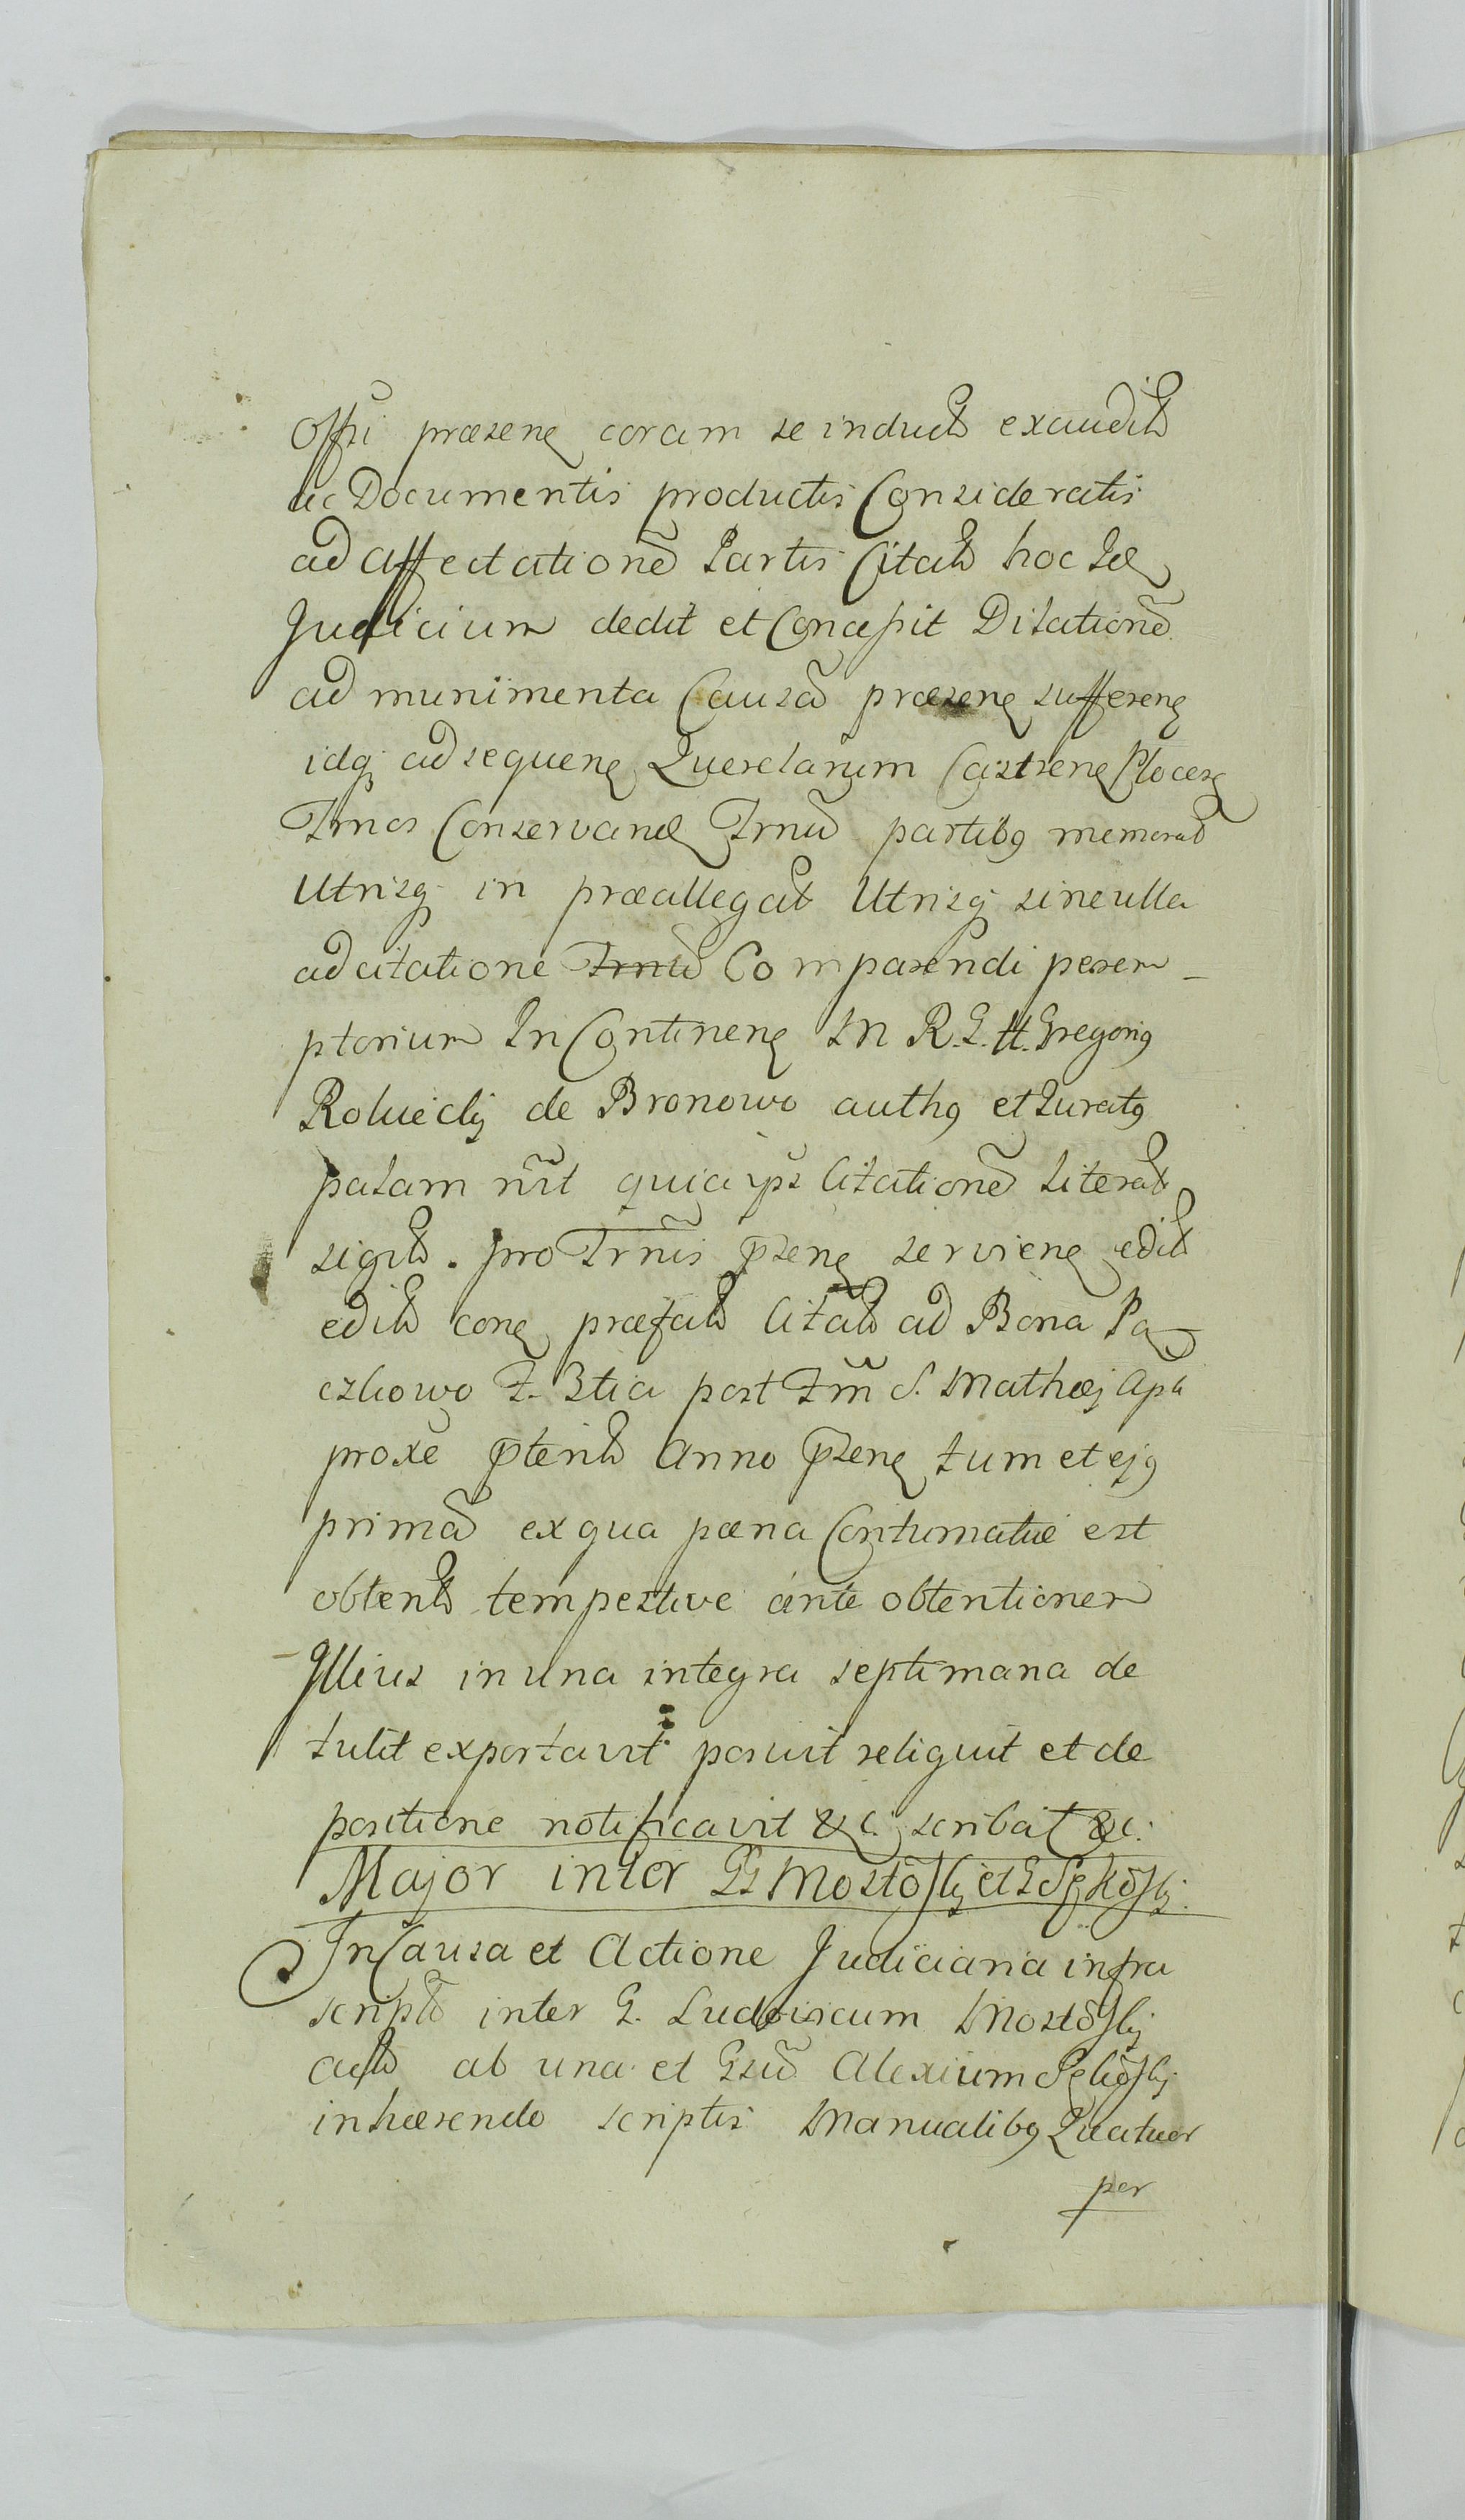 Offi præsen coram se induct exaudit
ac Documentis productis Consideratis
ad affectationē Partis Citat hoc
Judicium dedit et Concessit Dilationē
ad munimenta Causæ præsen sufferen
idq; ad sequen Querelarum Castren Plocen
Trnos Conservan Trnū partibꝯ memorat
Utrisq; in præallegat Utrisq; sine ulla
adcitatione Trnū Comparendi perem-
ptorium In Continen M R. G. H. Gregoriꝯ
de Bronowo authꝯ et Juratꝯ
palam nr̃t quia ips Citationē Literat
sigilt. pro Trñis p̄sen servien edit
edit con præfat Citat ad Bona Pa
czkowo F. 3tia post Fm̃ S. Mathæj Apli
proxe p̄terit Anno p̄sen tum et ejꝯ
primæ ex qua pœna Contumatiæ est
obtent tempestive ante obtentionem
Illius in una integra septimana de
tulit exportavit posuit reliquit et de
positione notificavit &c. scribat &c.
Major inter GG Mosto et G
In Causa et Actione Judiciaria infra
script inter G. Ludovicum
Act ab una et Gsū Alexium
inhærendo scriptis Manualibꝯ Quatuor
per